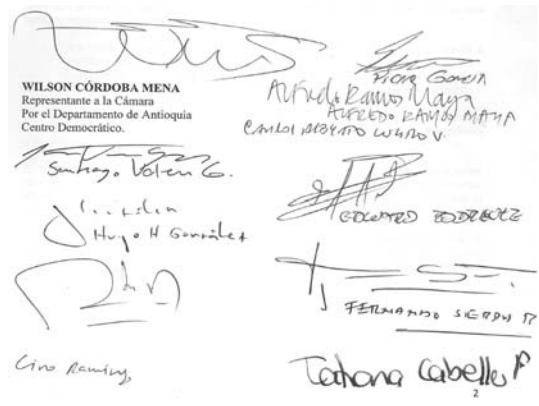 WILSON CÓRDOBA MENA
Representante a la Cámara
Por el Departamento de Antioquia
Centro Democrático.
García
Alfredo Ramos Maya
ALFREDO RAMOS MAYA
CARLOS ALBERTO
Santiago Valencia G.
EDWARD RODRIGUEZ
Hugo H González
FERNANDO SIERRA R
Ciro Ramírez
Tatiana Cabello F
2